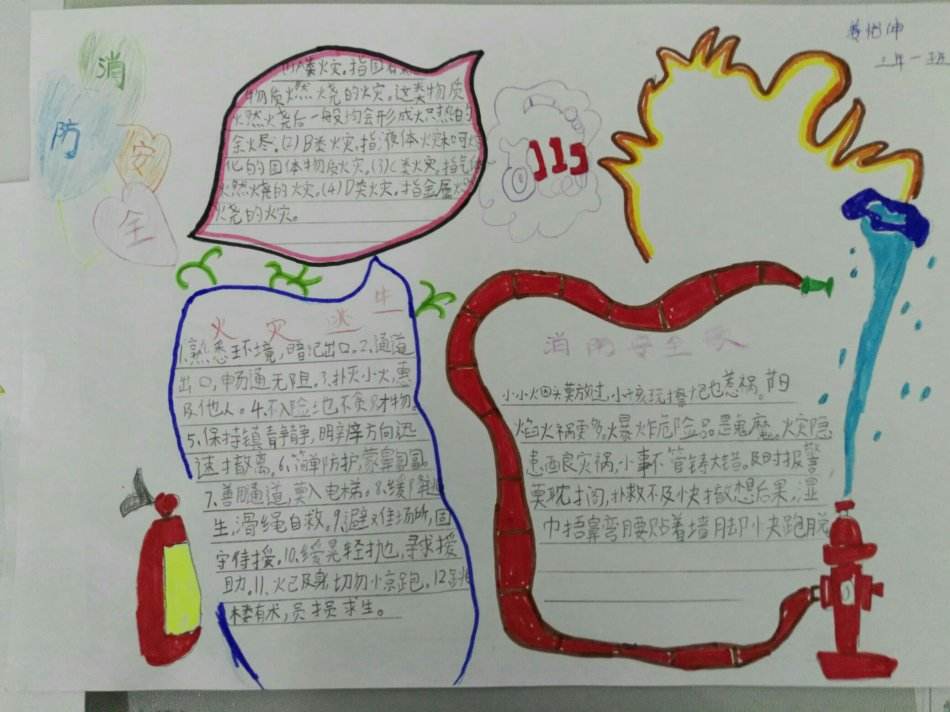 消
防
安
全
年一班
(1)A类火灾。指固
物质燃烧的火灾。这类物质
燃烧后一般均会形成灼热的
余火尽。(2)B类火灾。指液体火灾和可
化的固体物质火灾。(3)C类火灾。指气体
燃烧的火灾。(4)D类火灾。指金属
烧的火灾。
火灾逃生
1.熟悉环境,暗记出口。2.通道
出口,畅通无阻。3.扑灭小火,惠
及他人。4.不入险地,不贪财物。
5.保持镇静,明辨方向迅
速撤离。6.简单防护,蒙鼻
7.善用通道,莫入电梯。8.缓降逃
生,滑绳自救。9.避难场所,固
守待援。10.缓晃轻抛,寻求援
助。11.火已及身,切勿惊跑。12.跳
楼有术,损求生。
消防安全歌
小小火回头莫放过,小孩玩也惹祸。阳
焰火祸更多,爆炸危险品是鬼魔。火灾隐
患酿灾祸,小事不管铸大错。及时报警
莫耽搁,扑救不及快撤想后果,湿
巾捂鼻弯腰贴着墙脚小快跑脱